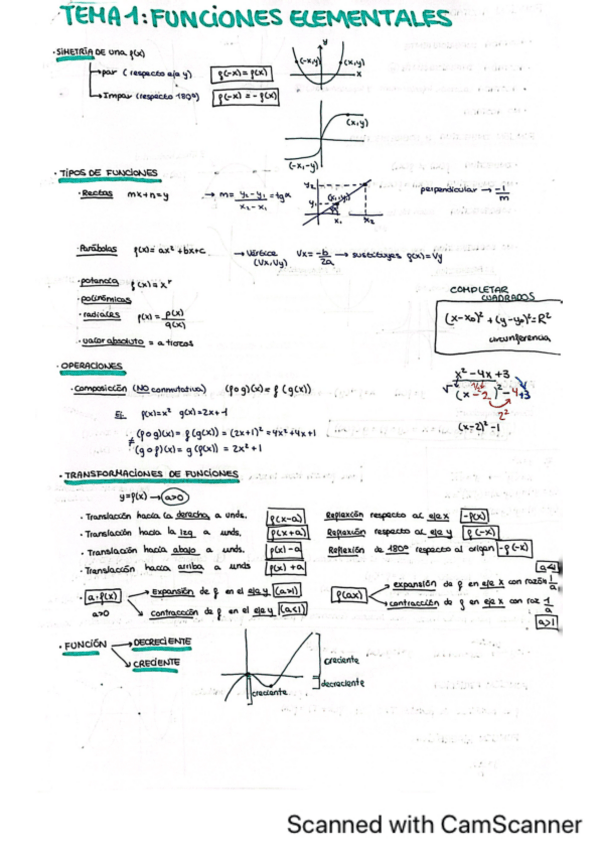 TEMA 1: FUNCIONES ELEMENTALES
· SIMETRÍA DE una f(x)
→ par (respecto eje y) f(-x) = f(x)
(-x,y) (x,y) y x
→ Impar (respecto 180º) f(-x) = -f(x)
(x,y)
(-x,-y)
· TIPOS DE FUNCIONES
· Rectas mx+n=y → m = y₂-y₁ / x₂-x₁ = tg α
y₂ y₁ (x₁,y₁) x₁ x₂
perpendicular → -1/m
· Parábolas f(x) = ax² + bx + c → Vértice (Vx, Vy) Vx = -b/2a → sustituyes f(x) = Vy
· potencia f(x) = xⁿ
· polinómicas
· radicales f(x) = p(x)/q(x)
· valor absoluto = a trozos
COMPLETAR CUADRADOS
(x-x₀)² + (y-y₀)² = R²
circunferencia
· OPERACIONES
x² - 4x + 3
(x - 2)² - 4+3
2²
(x-2)² - 1
· Composición (NO conmutativa) (f o g)(x) = f(g(x))
Ej: f(x) = x² g(x) = 2x+1
≠ (f o g)(x) = f(g(x)) = (2x+1)² = 4x² + 4x + 1
(g o f)(x) = g(f(x)) = 2x² + 1
· TRANSFORMACIONES DE FUNCIONES
y = f(x) → a>0
· Translación hacia la derecha a unds. f(x-a) Reflexión respecto al eje x -f(x)
· Translación hacia la izq a unds. f(x+a) Reflexión respecto al eje y f(-x)
· Translación hacia abajo a unds. f(x)-a Reflexión de 180º respecto al origen -f(-x)
· Translación hacia arriba a unds f(x)+a
· a·f(x) a>0 → Expansión de f en el eje y (a>1)
→ contracción de f en el eje y (a<1)
f(ax) → expansión de f en eje x con razón 1/a a<1
→ contracción de f en eje x con raz 1/a a>1
· FUNCIÓN → DECRECIENTE
→ CRECIENTE
creciente
decreciente
creciente
Scanned with CamScanner